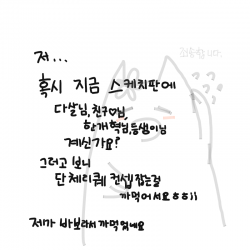 저...
죄송합니다.
혹시 지금 스케치판에
다살님,친구♡님,
한개혁님,등생이님
계신가요?
그러고 보니
단체리퀘 컨셉잡는걸
까먹어서요ㅎㅎ;;
제가 바보라서 까먹었네요